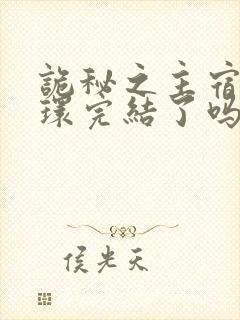 詭秘之主宿
環完結了嗎
侯光天